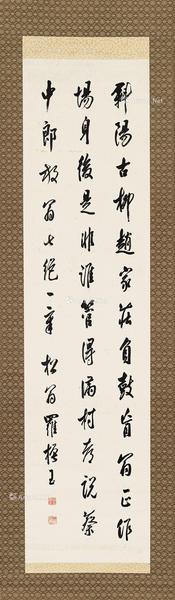 斜陽古柳趙家莊負鼓盲翁正作
場身後是非誰管得滿村聽說蔡
中郎放翁七絕一章 松翁羅振玉